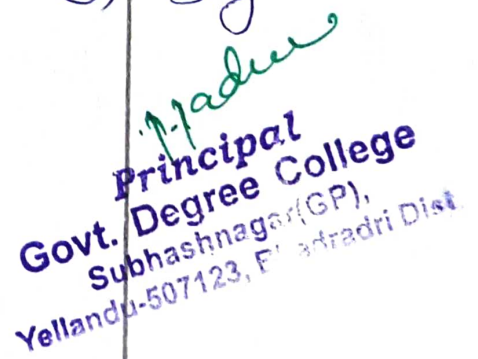 Principal
Govt. Degree College
Subhashnagar(GP),
Yellandu-507123, Bhadradri Dist.